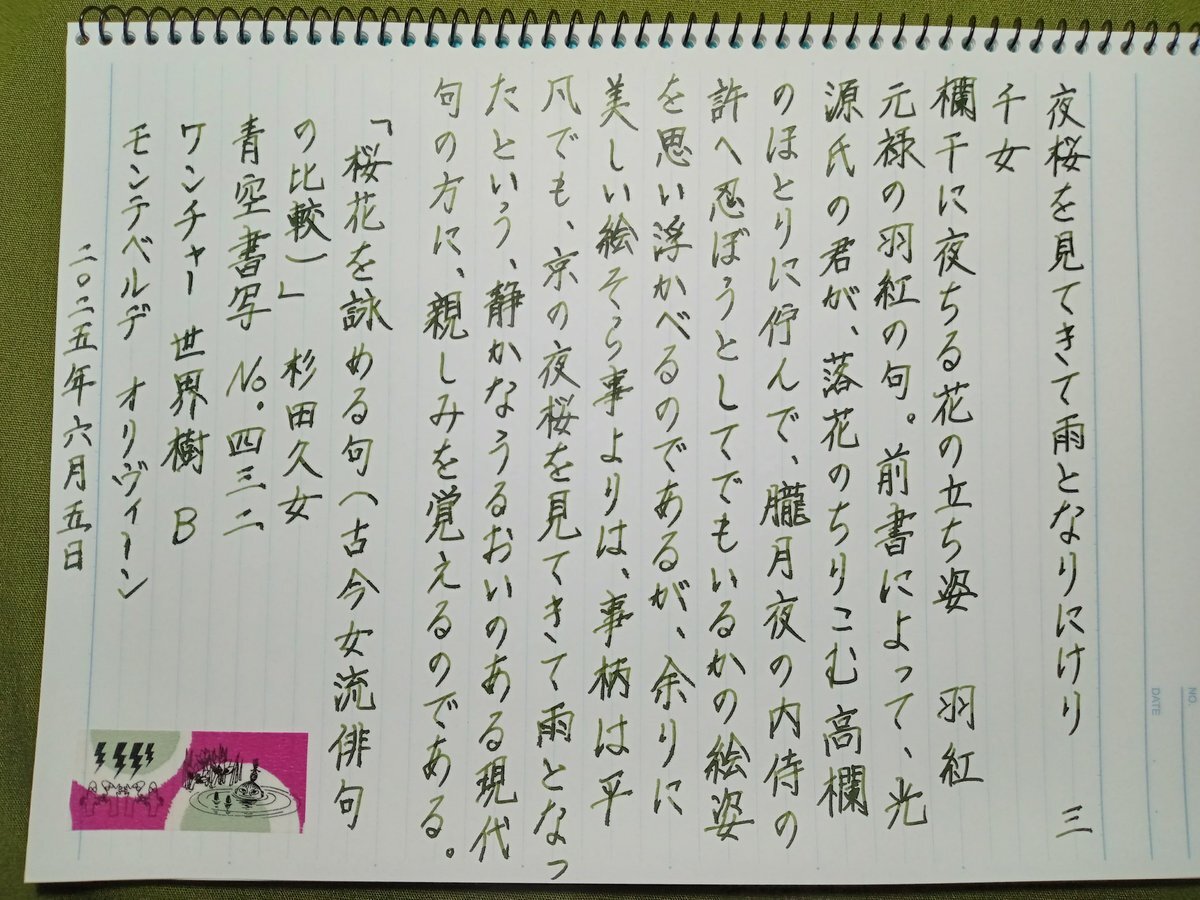 夜桜を見てきて雨となりにけり　三
千女
欄干に夜ちる花の立ち姿　羽紅
元禄の羽紅の句。前書によって、光
源氏の君が、落花のちりこむ高欄
のほとりに佇んで、朧月夜の内侍の
許へ忍ぼうとしてでもいるかの絵姿
を思い浮かべるのであるが、余りに
美しい絵そら事よりは、事柄は平
凡でも、京の夜桜を見てきて雨となっ
たという、静かなうるおいのある現代
句の方に、親しみを覚えるのである。
「桜花を詠める句（古今女流俳句
の比較）」　杉田久女
青空書写　No.四三二
ワンチャー　世界樹　B
モンテベルデ　オリヴィーン
二〇二五年六月五日
NO.
DATE